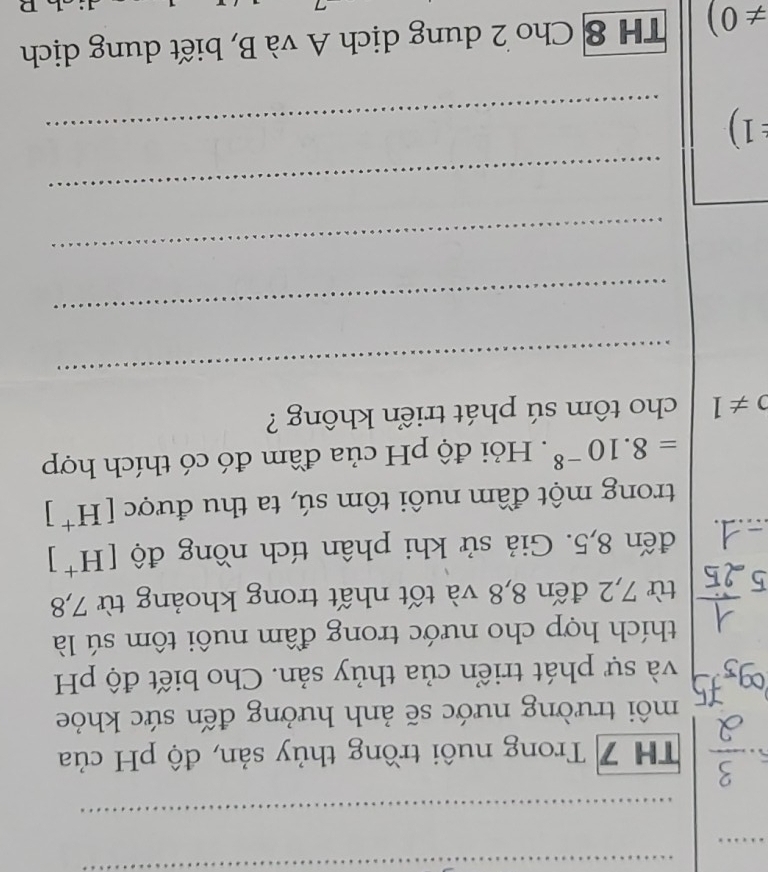 3
2
log₅ 75
TH 7 Trong nuôi trồng thủy sản, độ pH của
môi trường nước sẽ ảnh hưởng đến sức khỏe
và sự phát triển của thủy sản. Cho biết độ pH
thích hợp cho nước trong đầm nuôi tôm sú là
từ 7,2 đến 8,8 và tốt nhất trong khoảng từ 7,8
đến 8,5. Giả sử khi phân tích nồng độ [H⁺]
trong một đầm nuôi tôm sú, ta thu được [H⁺]
= 8.10⁻⁸. Hỏi độ pH của đầm đó có thích hợp
cho tôm sú phát triển không ?
1
5 25
= 1.
≠ 1
1)
≠ 0)
TH 8 Cho 2 dung dịch A và B, biết dung dịch